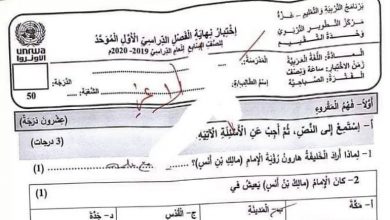 برنامج التربية والتعليم - غزة
مركز التطوير التربوي
وحدة التقييم
اختبار نهاية الفصل الدراسي الأول الموحد
للصف السابع للعام الدراسي 2019-2020م
unrwa
الأونروا
المبحث: اللغة العربية
المدرسة:
الدرجة:
زمن الاختبار: ساعة ونصف
اسم الطالب/ة:
الشعبة:
الفترة: الصباحية
50
أولاً- فهم المقروء
(عشرون درجة)
أ- استمع إلى النص، ثم أجب عن الأسئلة الآتية.
(3 درجات)
1- لماذا أراد الخليفة هارون رؤية الإمام (مالك بن أنس)؟
(1)
2- كان الإمام (مالك بن أنس) يعيش في
(1)
أ- مكة
ب- المدينة
ج- القدس
د- جدة